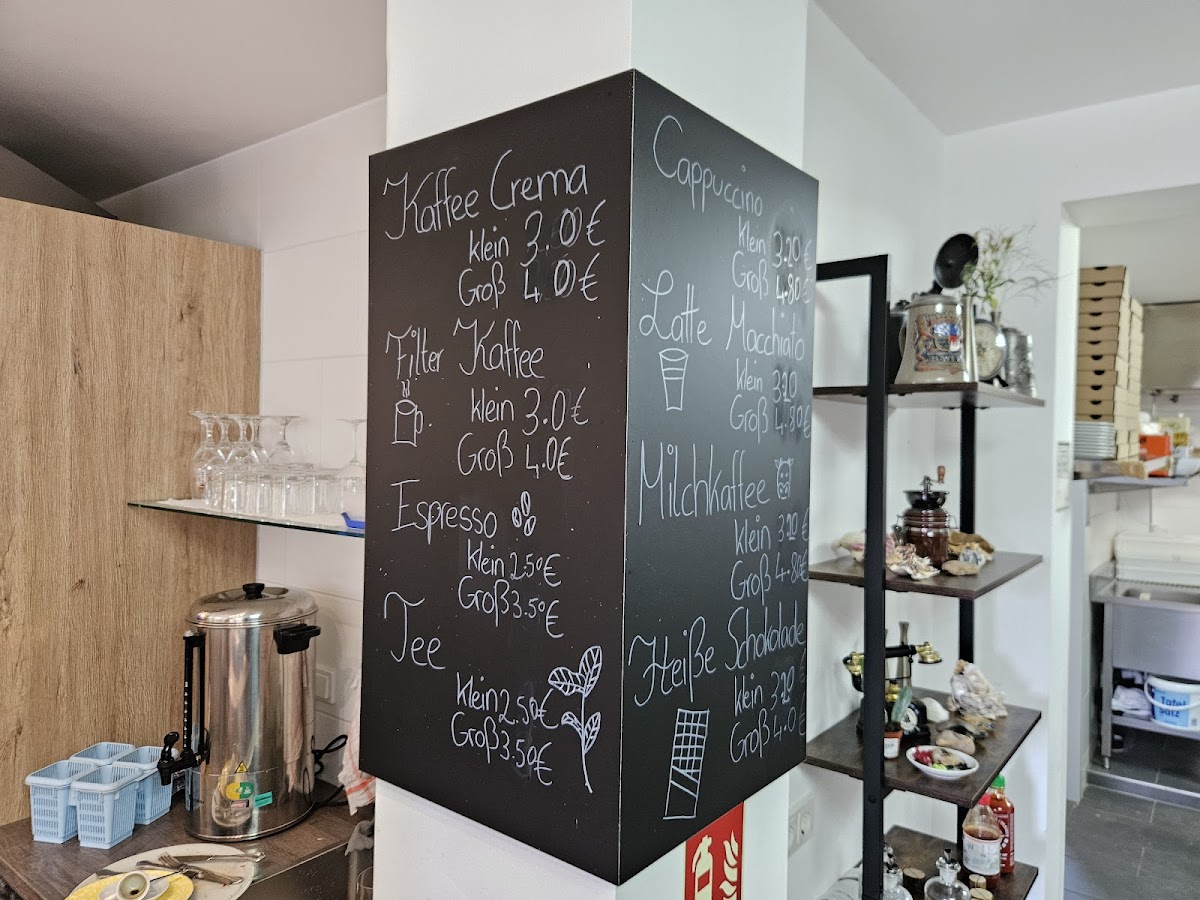 Kaffee Crema
klein 3.0€
Groß 4.0€
Filter Kaffee
klein 3.0€
Groß 4.0€
Espresso
klein 2.50€
Groß 3.50€
Tee
klein 2.50€
Groß 3.50€
Cappuccino
klein 3.20€
Groß 4.80€
Latte Macchiato
klein 3.20
Groß 4.80€
Milchkaffee
klein 3.20€
Groß 4.80€
Heiße Schokolade
klein 3.20€
Groß 4.0€
Tafel
salz